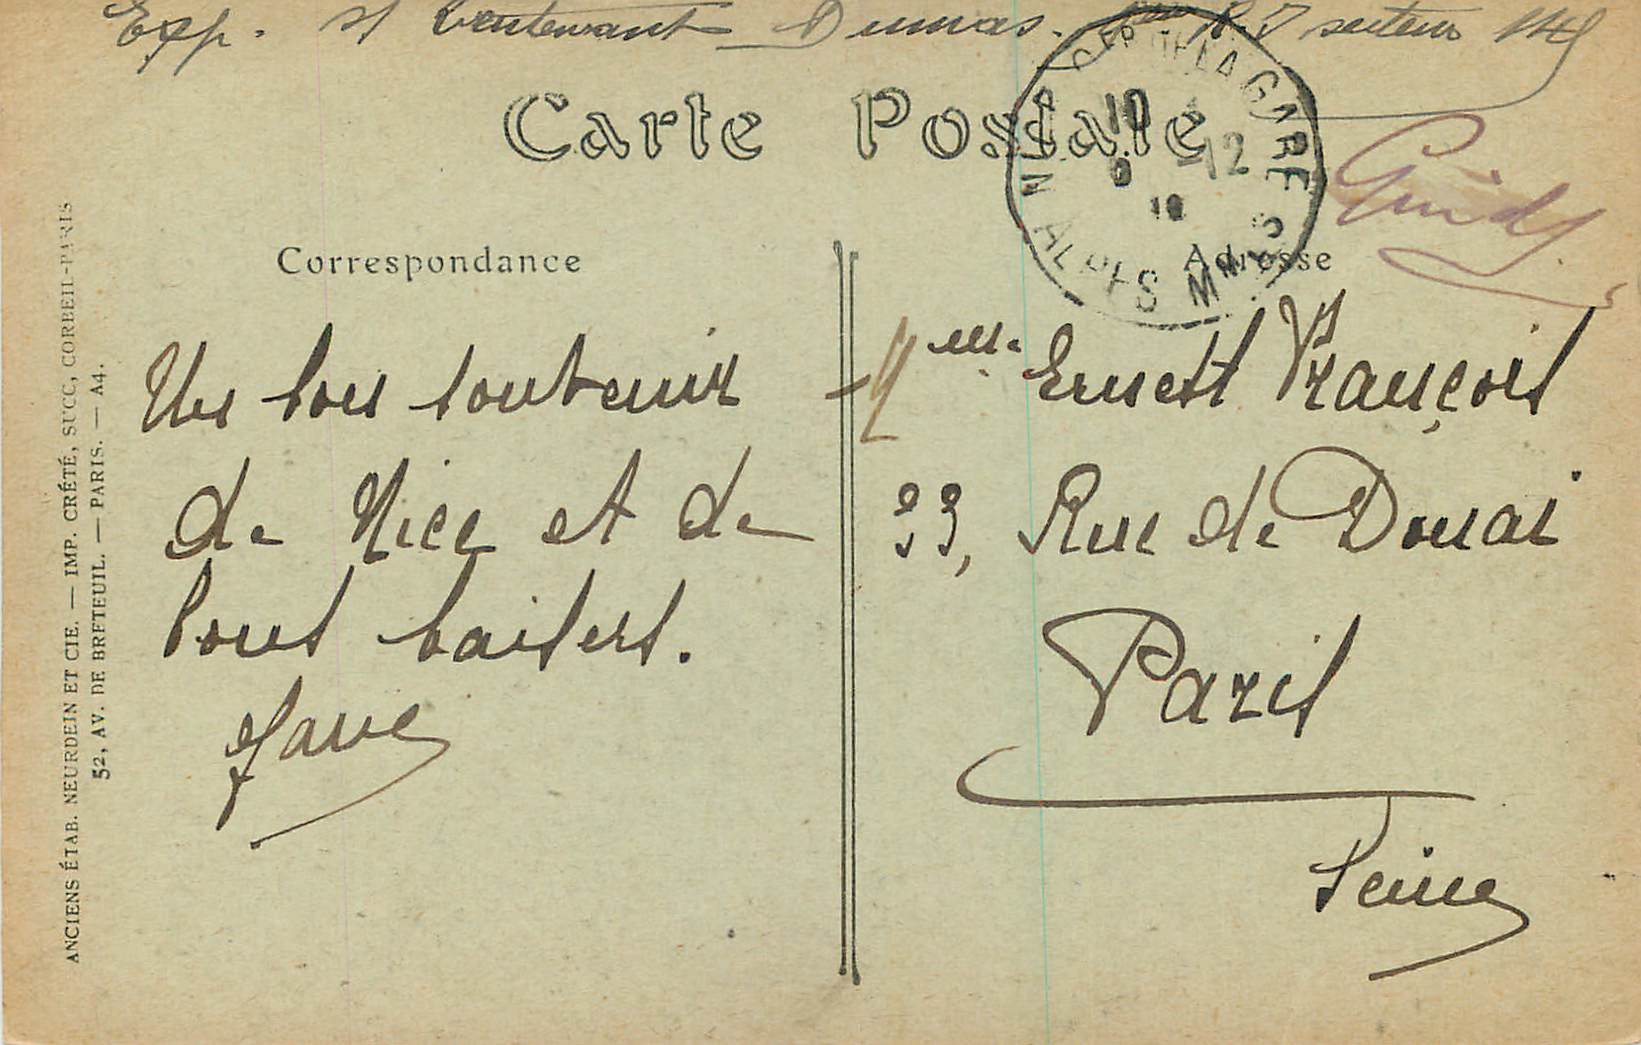 Exp. st lieutenant Dumas. R.I secteur 148
Carte Postale
DE LA GARE
10
-12
ALPES MMES
Correspondance
Adresse
Un bon souvenir
de Nice et de
bons baisers.
Melle Ernest François
33, Rue de Douai
Paris
Seine
ANCIENS ÉTAB. NEURDEIN ET CIE. — IMP. CRÉTÉ, SUCC, CORBEIL-PARIS
52, AV. DE BRETEUIL. — PARIS. — A4.